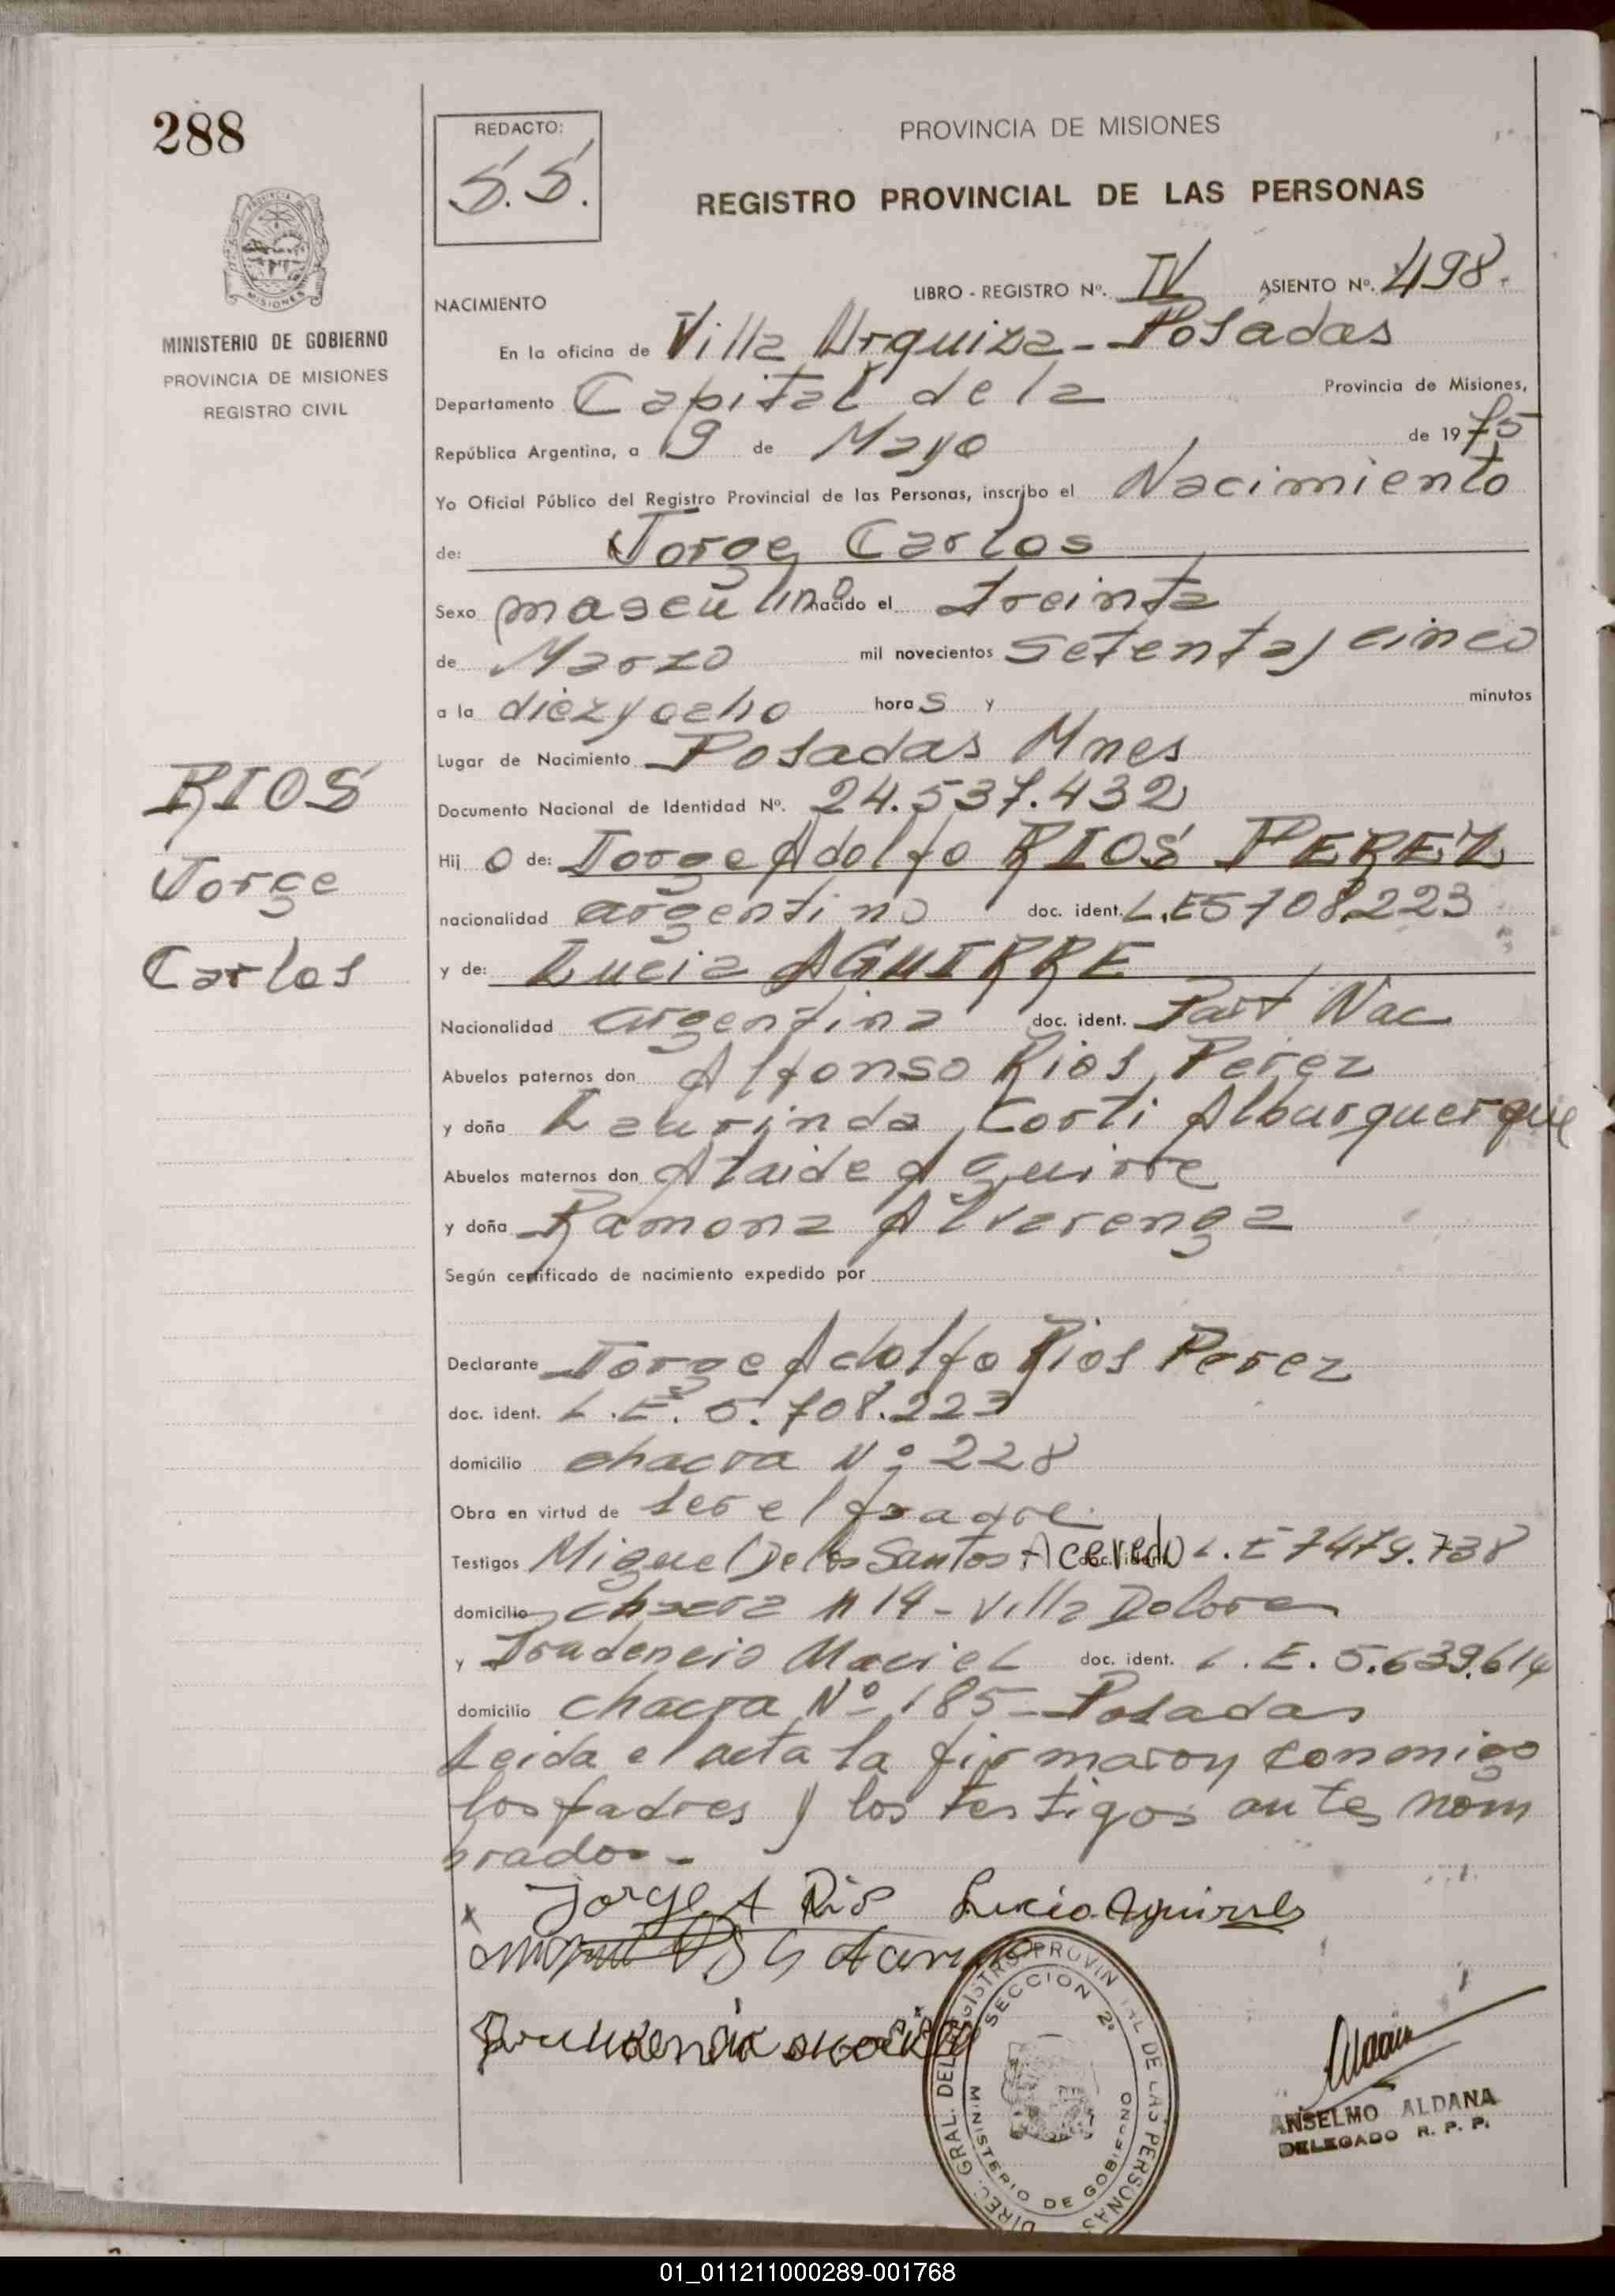 288
REDACTO:
S.S.
PROVINCIA DE MISIONES
REGISTRO PROVINCIAL DE LAS PERSONAS
MISIONES
MINISTERIO DE GOBIERNO
PROVINCIA DE MISIONES
REGISTRO CIVIL
LIBRO - REGISTRO Nº. IV ASIENTO Nº. 498.
NACIMIENTO
En la oficina de Villa Urquiza - Posadas
Departamento Capital de la Provincia de Misiones,
República Argentina, a 9 de Mayo de 1975
Yo Oficial Público del Registro Provincial de las Personas, inscribo el Nacimiento
de: Jorge Carlos
Sexo masculino nacido el treinta
de Marzo mil novecientos setenta y cinco
a la diez y ocho horas y minutos
Lugar de Nacimiento Posadas Mnes
Documento Nacional de Identidad Nº. 24.537.432
RIOS
Jorge
Carlos
Hijo de: Jorge Adolfo RIOS PEREZ
nacionalidad argentino doc. ident. L.E 5708.223
y de: Lucia AGUIRRE
Nacionalidad argentina doc. ident. Part Nac
Abuelos paternos don Alfonso Rios Perez
y doña Laurinda Corti Alburquerque
Abuelos maternos don Ataide Aguirre
y doña Ramona Alvarenga
Según certificado de nacimiento expedido por
Declarante Jorge Adolfo Rios Perez
doc. ident. L.E. 5.708.223
domicilio chacra Nº 228
Obra en virtud de ser el padre.
Testigos Miguel De los Santos Acevedo L.E 7479.738
domicilio chacra n 14 - Villa Dolores
y Prudencio Maciel doc. ident. L.E. 5.639.614
domicilio chacra Nº 185 - Posadas
Leida el acta la firmaron conmigo
los padres y los testigos antes nom
brados -
x Jorge A Rios Lucia Aguirre
DIREC. GRAL. DEL REGISTRO PROVINCIAL DE LAS PERSONAS
SECCION 2ª
MINISTERIO DE GOBIERNO
ANSELMO ALDANA
DELEGADO R. P. P.
01_011211000289-001768